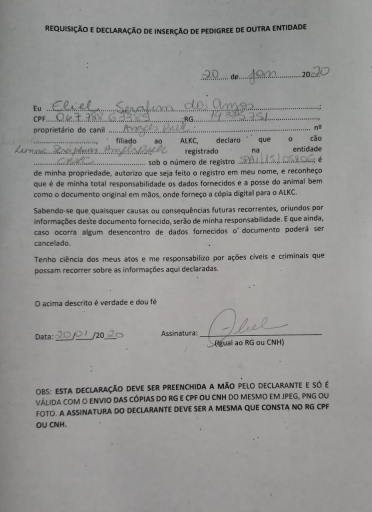 REQUISIÇÃO E DECLARAÇÃO DE INSERÇÃO DE PEDIGREE DE OUTRA ENTIDADE
20 de Jan 2020
Eu Eliel Serafim dos Anjos;
CPF ;RG ,
proprietário do canil nº
, filiado ao ALKC, declaro que o cão
registrado na entidade
sob o número de registro é
de minha propriedade, autorizo que seja feito o registro em meu nome, e reconheço
que é de minha total responsabilidade os dados fornecidos e a posse do animal bem
como o documento original em mãos, onde forneço a cópia digital para o ALKC.
Sabendo-se que quaisquer causas ou consequências futuras recorrentes, oriundos por
informações deste documento fornecido, serão de minha responsabilidade. E que ainda,
caso ocorra algum desencontro de dados fornecidos o documento poderá ser
cancelado.
Tenho ciência dos meus atos e me responsabilizo por ações cíveis e criminais que
possam recorrer sobre as informações aqui declaradas.
O acima descrito é verdade e dou fé
Data: 20/01/2020 Assinatura: Eliel
(Igual ao RG ou CNH)
OBS: ESTA DECLARAÇÃO DEVE SER PREENCHIDA A MÃO PELO DECLARANTE E SÓ É
VÁLIDA COM O ENVIO DAS CÓPIAS DO RG E CPF OU CNH DO MESMO EM JPEG, PNG OU
FOTO. A ASSINATURA DO DECLARANTE DEVE SER A MESMA QUE CONSTA NO RG CPF
OU CNH.